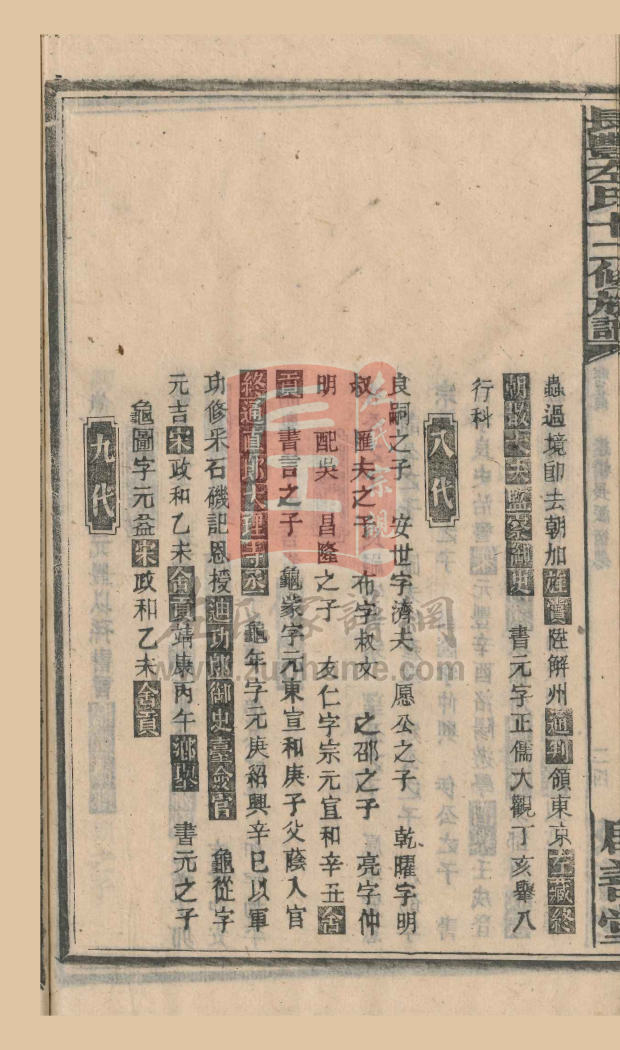 長豐左氏十二修族譜
蟲過境卽去朝加旌賞陞解州通判領東京左藏終
朝散大夫監察御史　書元字正儒大觀丁亥舉八
行科
八代
良嗣之子　安世字濟夫　愿公之子　乾曜字明
叔　匯夫之子　布字叔文　之邵之子　亮字仲
明　配吳　昌隆之子　亥仁字宗元宣和辛丑舍
貢　書言之子　龜蒙字元東宣和庚子父蔭入官
終通直郎大理寺丞　龜年字元庚紹興辛巳以軍
功修采石磯記恩授迪功郎御史臺僉書　龜從字
元吉宋政和乙未舍貢靖康丙午鄉舉　書元之子
龜圖字元益宋政和乙未舍貢
九代
左氏家譜網
www.zuohome.com